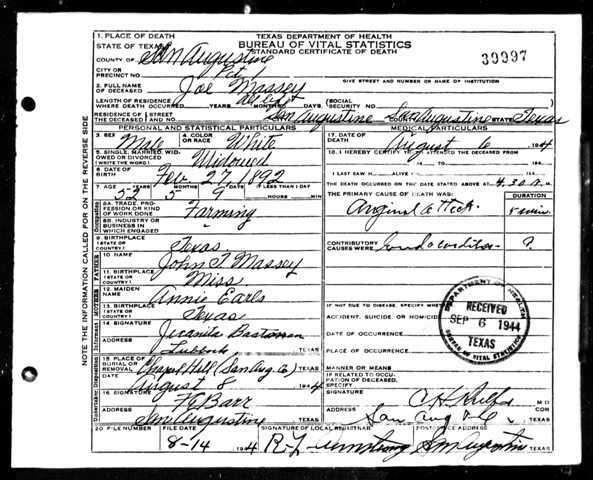 TEXAS DEPARTMENT OF HEALTH
BUREAU OF VITAL STATISTICS
STANDARD CERTIFICATE OF DEATH
39997
1. PLACE OF DEATH
STATE OF TEXAS
COUNTY OF San Augustine
CITY OR PRECINCT NO. Pct 1
GIVE STREET AND NUMBER OR NAME OF INSTITUTION
2. FULL NAME OF DECEASED Joe Massey
LENGTH OF RESIDENCE WHERE DEATH OCCURRED YEARS MONTHS DAYS
(SOCIAL SECURITY NO.
RESIDENCE OF THE DECEASED STREET AND NO. San Augustine San Augustine STATE Texas
PERSONAL AND STATISTICAL PARTICULARS
3. SEX Male
4. COLOR OR RACE White
5. SINGLE, MARRIED, WIDOWED OR DIVORCED (WRITE THE WORD) Widowed
6. DATE OF BIRTH Feb 27 1892
7. AGE YEARS MONTHS DAYS IF LESS THAN 1 DAY
52 5 9 HOURS MIN
8A. TRADE, PROFESSION OR KIND OF WORK DONE Farming
8B. INDUSTRY OR BUSINESS IN WHICH ENGAGED "
9. BIRTHPLACE (STATE OR COUNTRY) Texas
FATHER
10 NAME John T Massey
11. BIRTHPLACE (STATE OR COUNTRY) Miss
MOTHER
12. MAIDEN NAME Annie Earls
13. BIRTHPLACE (STATE OR COUNTRY) Texas
Informant
14 SIGNATURE Juanita
ADDRESS Lubbock TEXAS
15 PLACE OF BURIAL OR REMOVAL Chapel Hill (San Aug. Co) TEXAS
DATE August 8 1944
16 SIGNATURE F G Barr
ADDRESS San Augustine TEXAS
MEDICAL PARTICULARS
17. DATE OF DEATH August 6 194 4
18. I HEREBY CERTIFY THAT I ATTENDED THE DECEASED FROM
194 TO 194
I LAST SAW H ALIVE ON 194
THE DEATH OCCURRED ON THE DATE STATED ABOVE AT 4:30 M.
THE PRIMARY CAUSE OF DEATH WAS: DURATION
Angina attack.
CONTRIBUTORY CAUSES WERE ?
IF NOT DUE TO DISEASE, SPECIFY WHETHER:
ACCIDENT, SUICIDE, OR HOMICIDE
DATE OF OCCURRENCE
PLACE OF OCCURRENCE
MANNER OR MEANS
IF RELATED TO OCCUPATION OF DECEASED, SPECIFY
SIGNATURE M D
ADDRESS San Aug TEXAS
DEPARTMENT OF HEALTH
RECEIVED
SEP 6 1944
TEXAS
BUREAU OF VITAL STATISTICS
20 FILE NUMBER
FILE DATE 8-14 194 4
SIGNATURE OF LOCAL REGISTRAR R-L- Armstrong
POSTOFFICE ADDRESS San Augustine TEXAS
NOTE THE INFORMATION CALLED FOR ON THE REVERSE SIDE